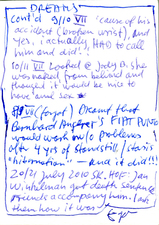 DREAMS
cont'd 9/10 VII 'cause of his
accident (broken wrist). And
yes, I actually HAD to call
him and did!!
10/11 VII Looked @ Jody B. she
was naked from behind and
thought it would be nice to
have sex
VII (forgot) Dreamt that
Bernhard FIAT PUNTO
would work w/o problems
after 4 yrs of standstill / stasis
"hibernation" — and it did!!!
20/21 July 2010 SK. HOF: Jan
Winkelman got death sentence
friends accompany him. I ask
them how it was